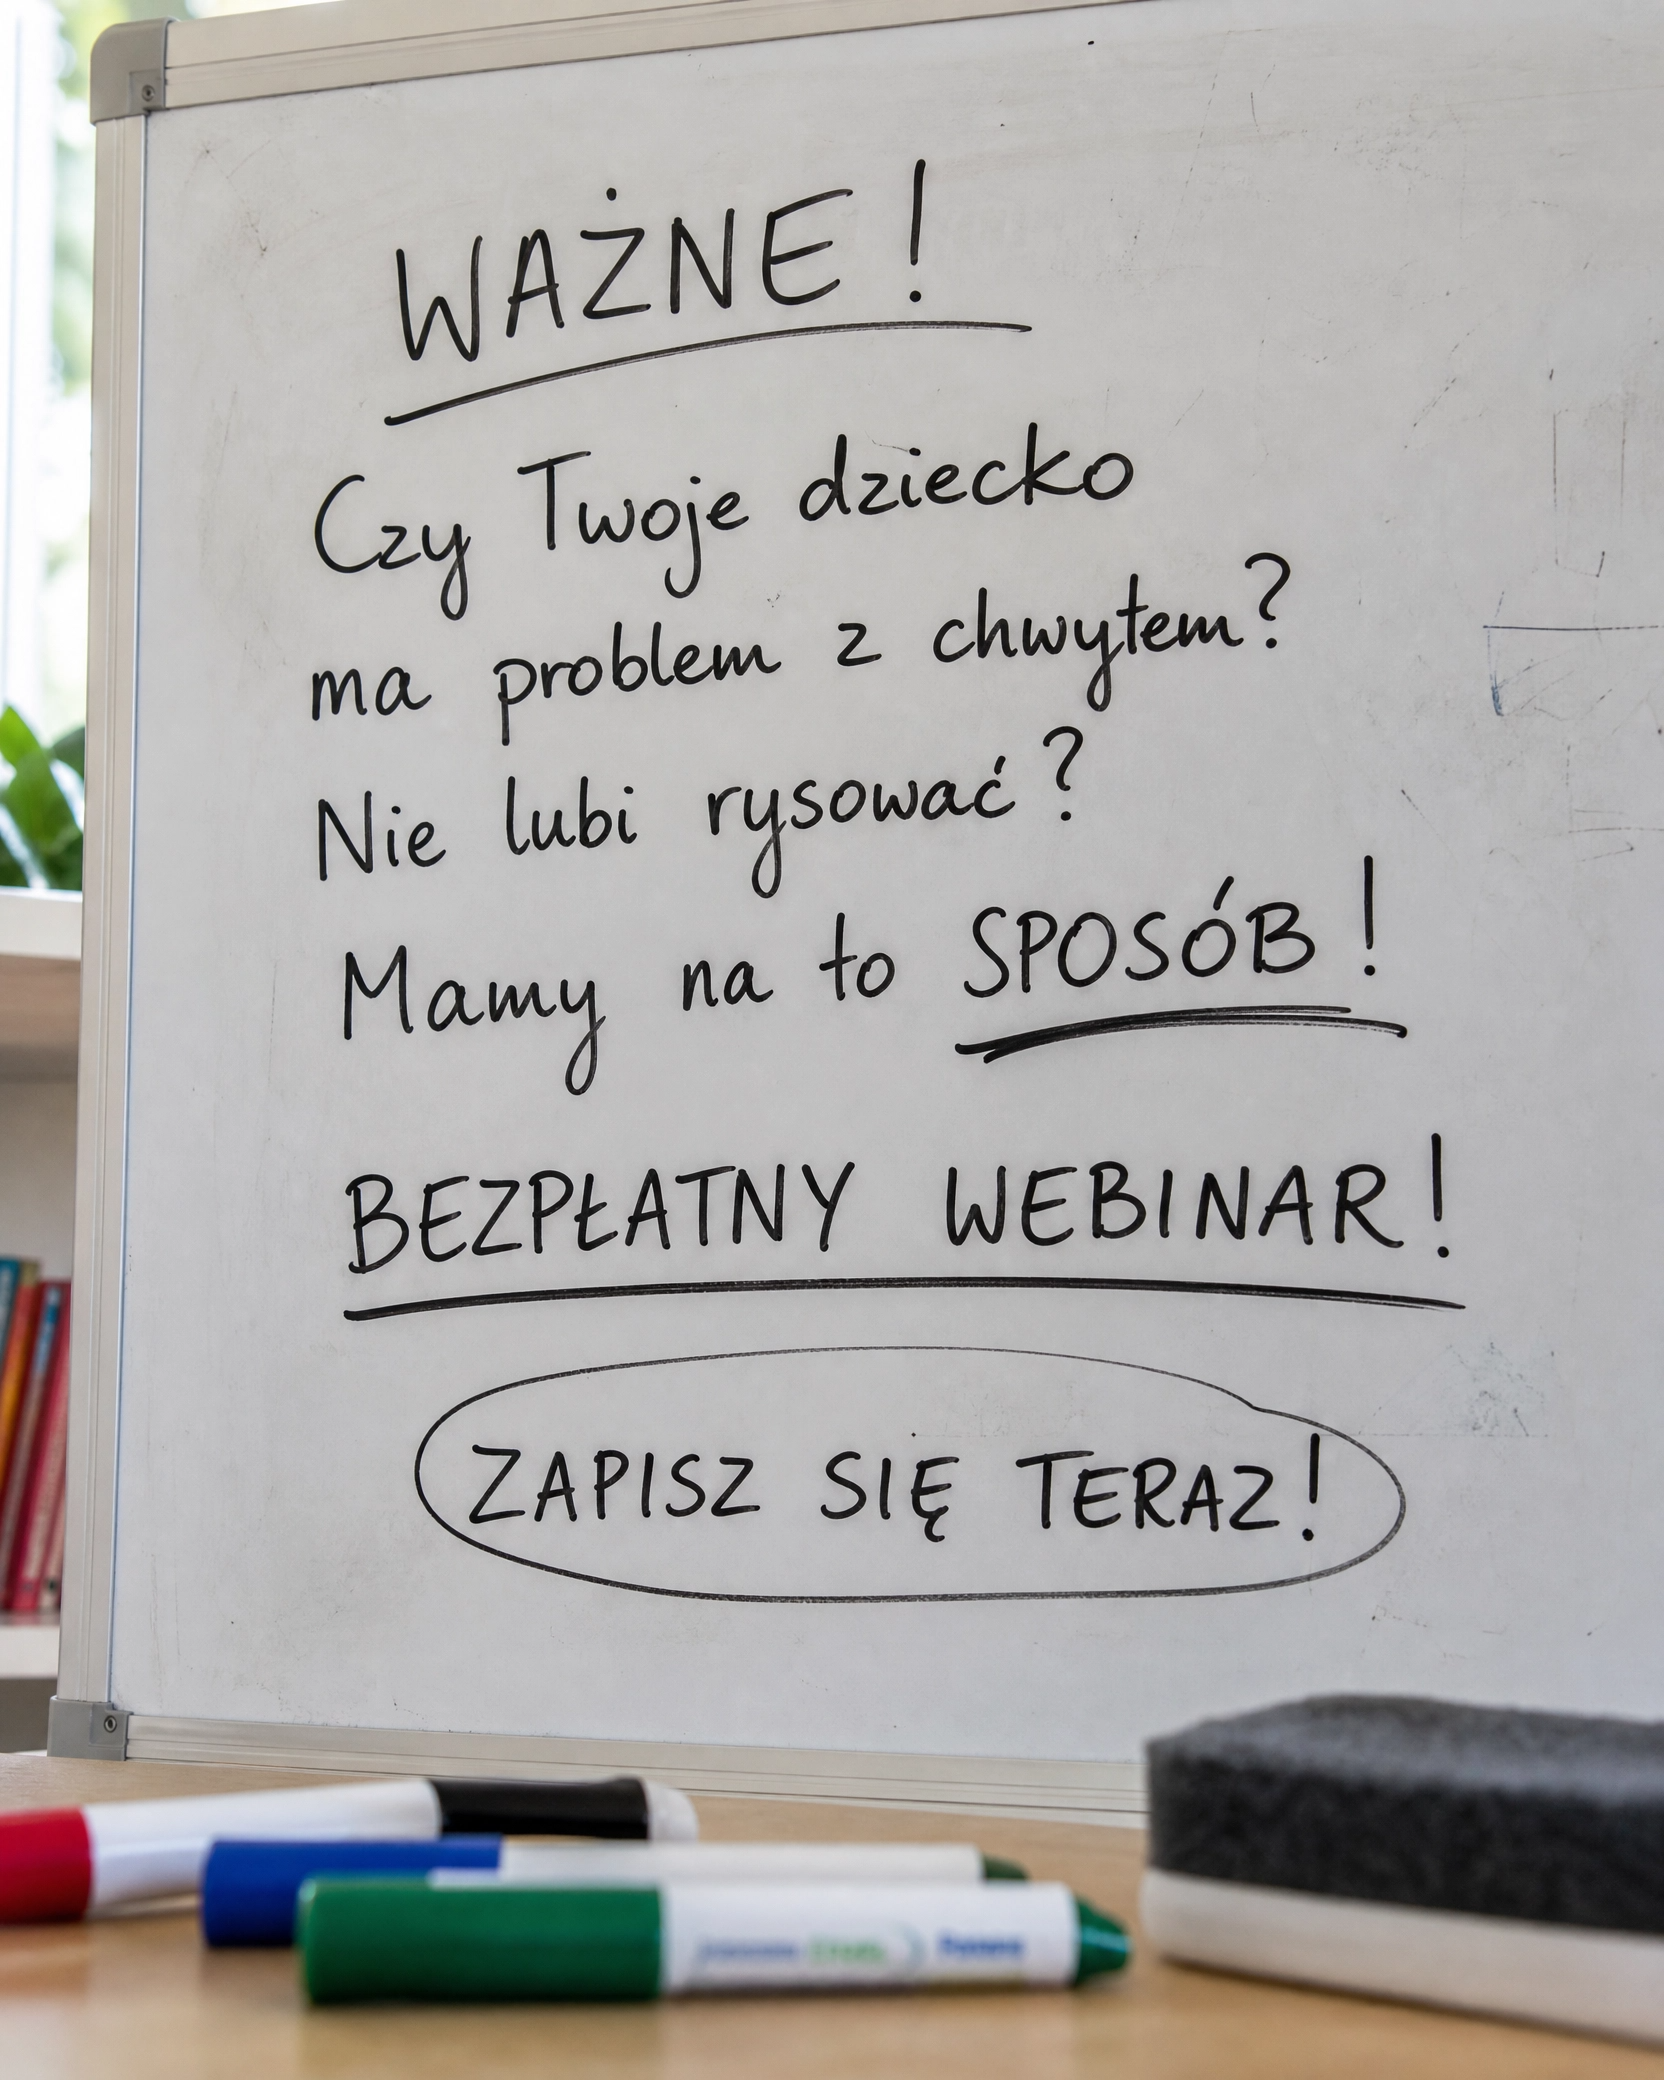 WAŻNE!
Czy Twoje dziecko
ma problem z chwytem?
Nie lubi rysować?
Mamy na to SPOSÓB!
BEZPŁATNY WEBINAR!
ZAPISZ SIĘ TERAZ!